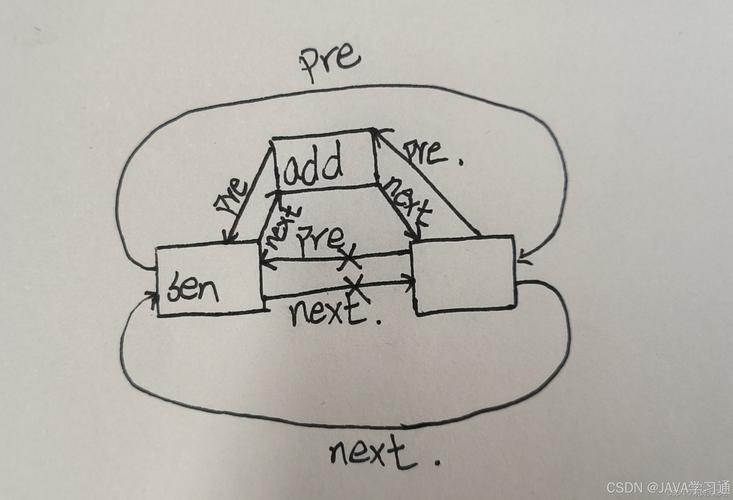 pre
add
pre.
pre
next
next
pre
sen
next.
next.
CSDN @JAVA学习通